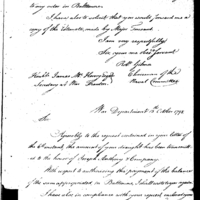 to any one in Baltimore.
I have also to submit that you would forward me a
copy of the Estimate made by Major Toussard
I am very respectfully
Sir, your mo Obd Servant
Robt Gilmor
Chairman of the
Naval Committee
James McHenry Esqr
Secretary at War Trenton.
War Department 1798
Sir
Agreeably to the request contained in your letter of
the 6 instant, the amount of your draught has been transmitted
to the house of Joseph Anthony & Company
With respect to authorising the payment of the balance
of the sum appropriated in Baltimore, I shall write you again
I have also in compliance with your request